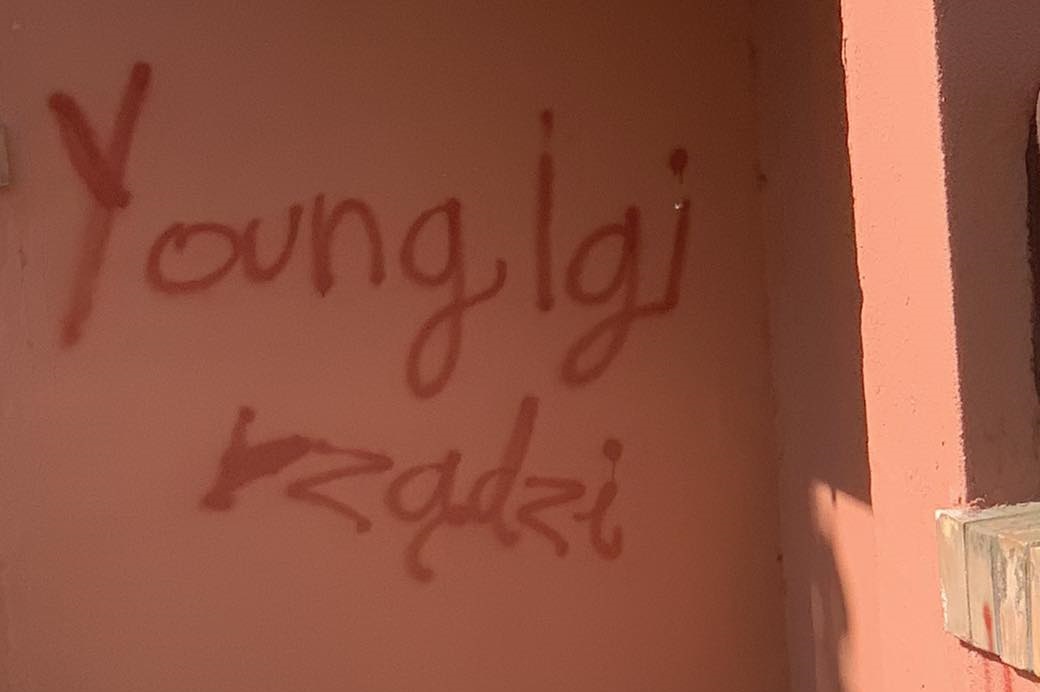 Young Igi
rządzi